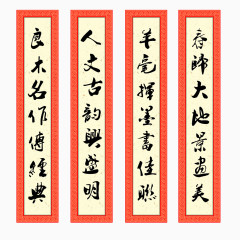 春歸大地景盡美
羊毫揮墨書佳聯
人文古韵興邀明
良木名作傳經典